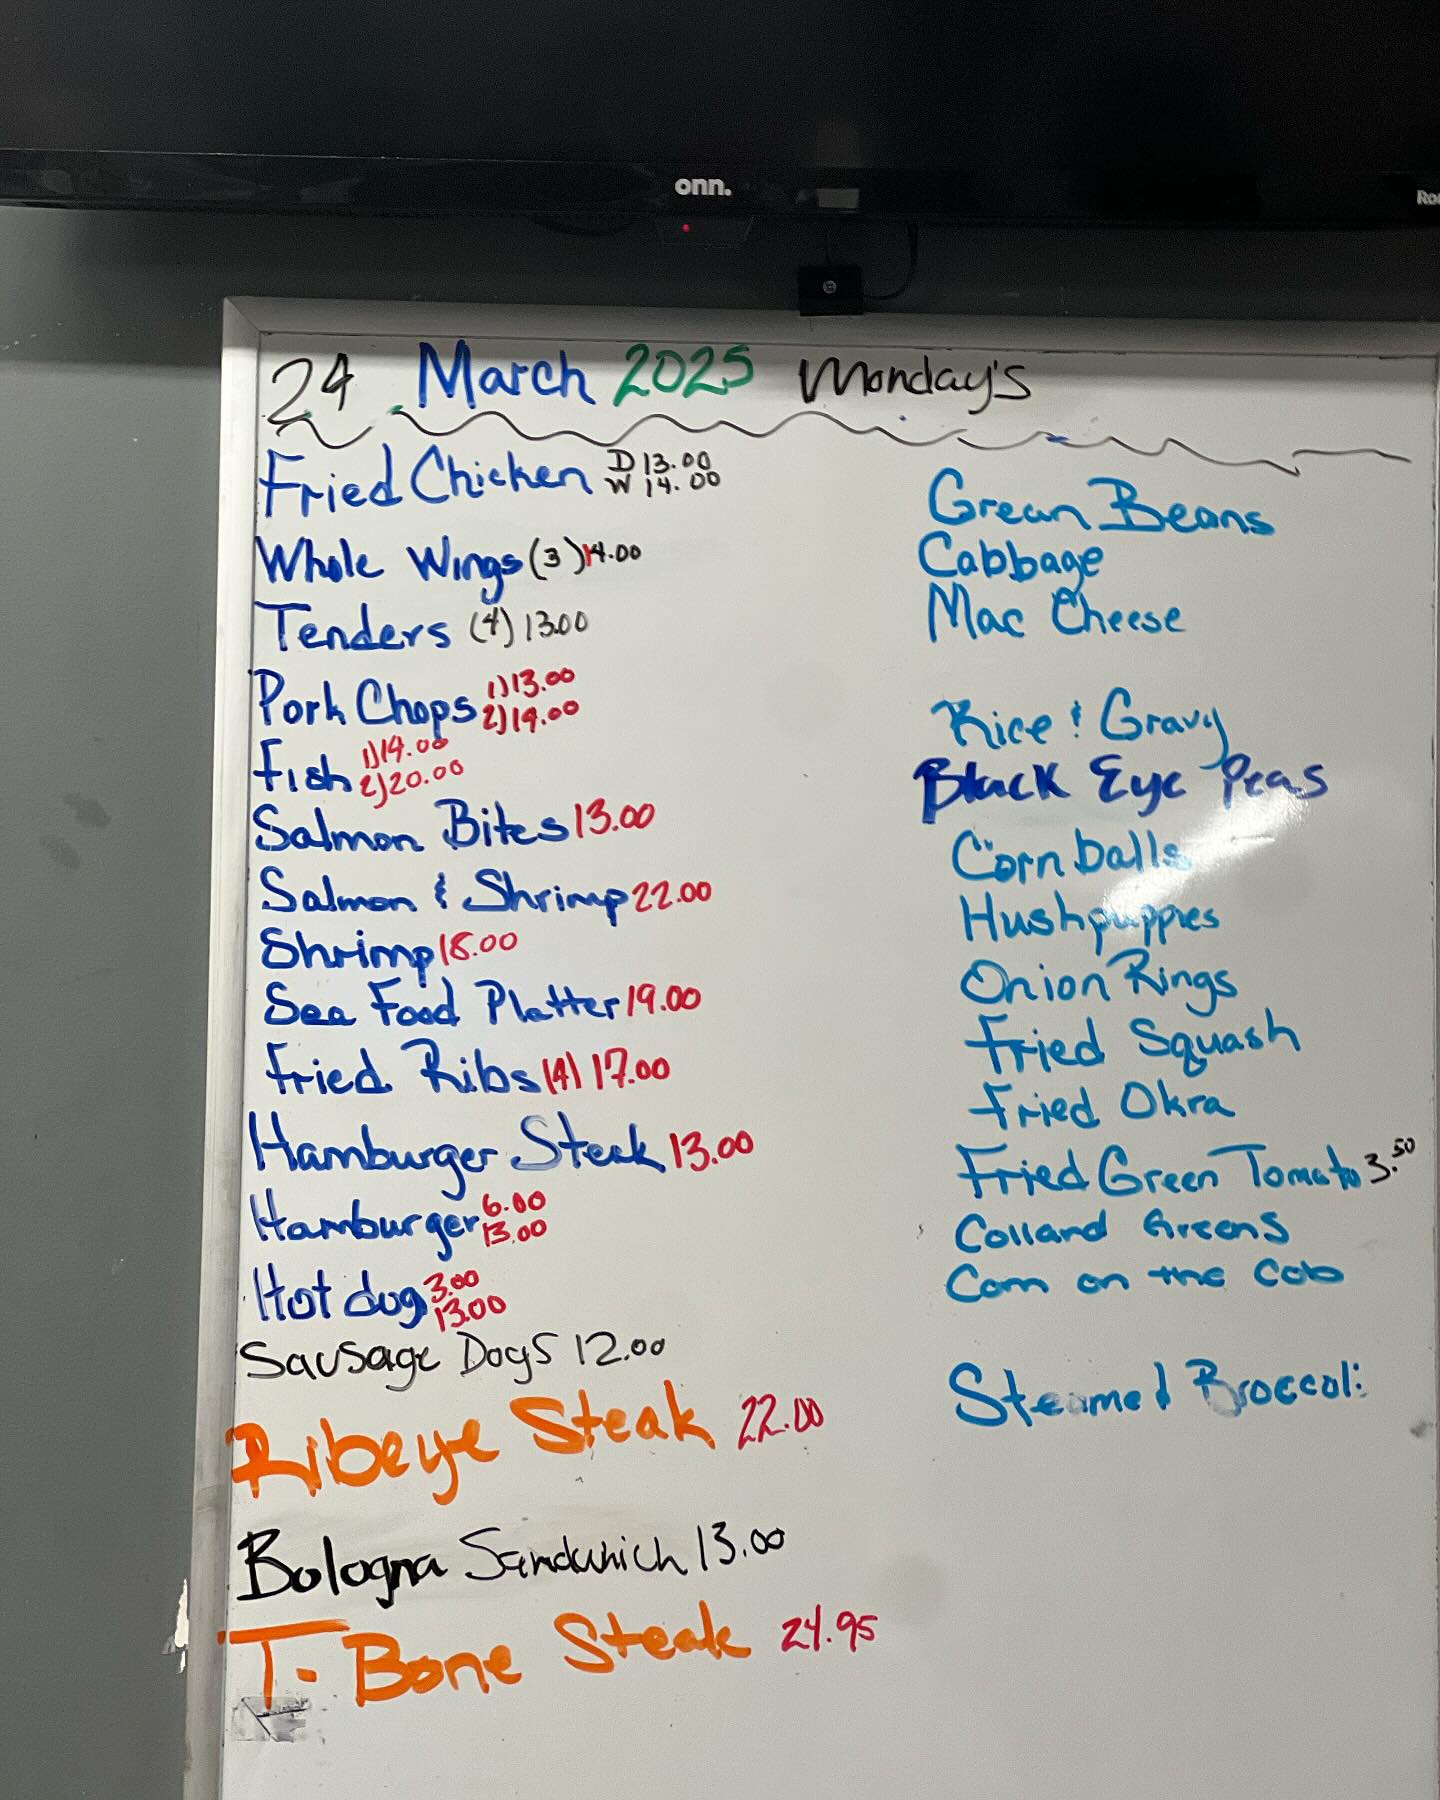 onn.
24 March 2025 Monday's
Fried Chicken D 13.00
W 14.00
Whole Wings (3) 14.00
Tenders (4) 13.00
Pork Chops 1) 13.00
2) 19.00
Fish 1) 14.00
2) 20.00
Salmon Bites 13.00
Salmon & Shrimp 22.00
Shrimp 18.00
Sea Food Platter 19.00
Fried Ribs (4) 17.00
Hamburger Steak 13.00
Hamburger 6.00
13.00
Hot dog 3.00
13.00
Sausage Dogs 12.00
Ribeye Steak 22.00
Bologna Sandwhich 13.00
T-Bone Steak 24.95
Grean Beans
Cabbage
Mac Cheese
Rice & Gravy
Black Eye Peas
Corn balls
Hushpuppies
Onion Rings
Fried Squash
Fried Okra
Fried Green Tomato 3.50
Colland Greens
Corn on the Cob
Steamed Broccoli